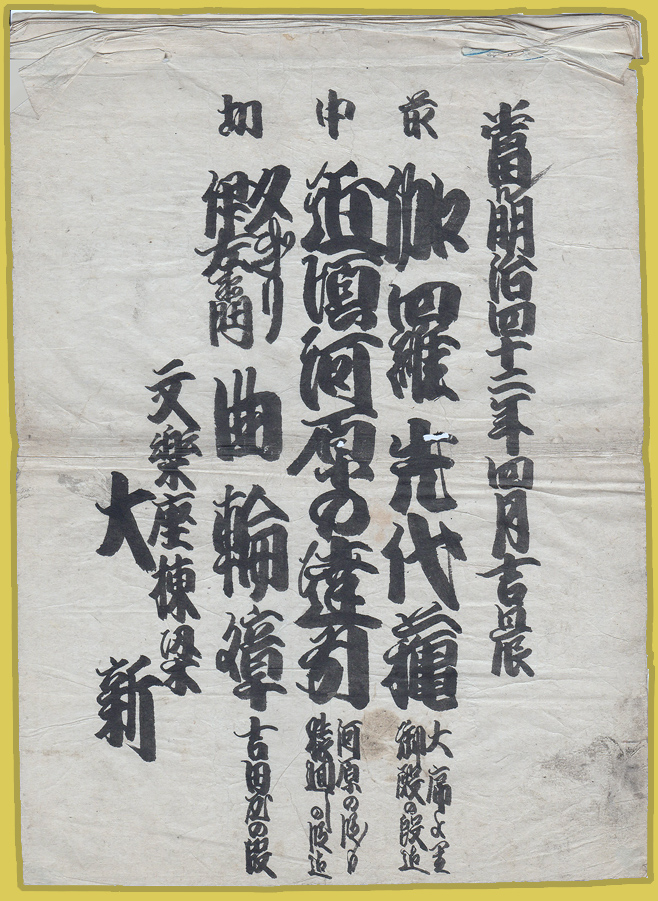 當ル明治四十二年四月吉晨
前 伽羅先代萩 大席より御殿の段迄
中 近頃河原の達引 河原の段より猿廻しの段迄
切 夕ぎり伊左衛門 曲輪文章 吉田屋の段
文樂座棟梁
大新